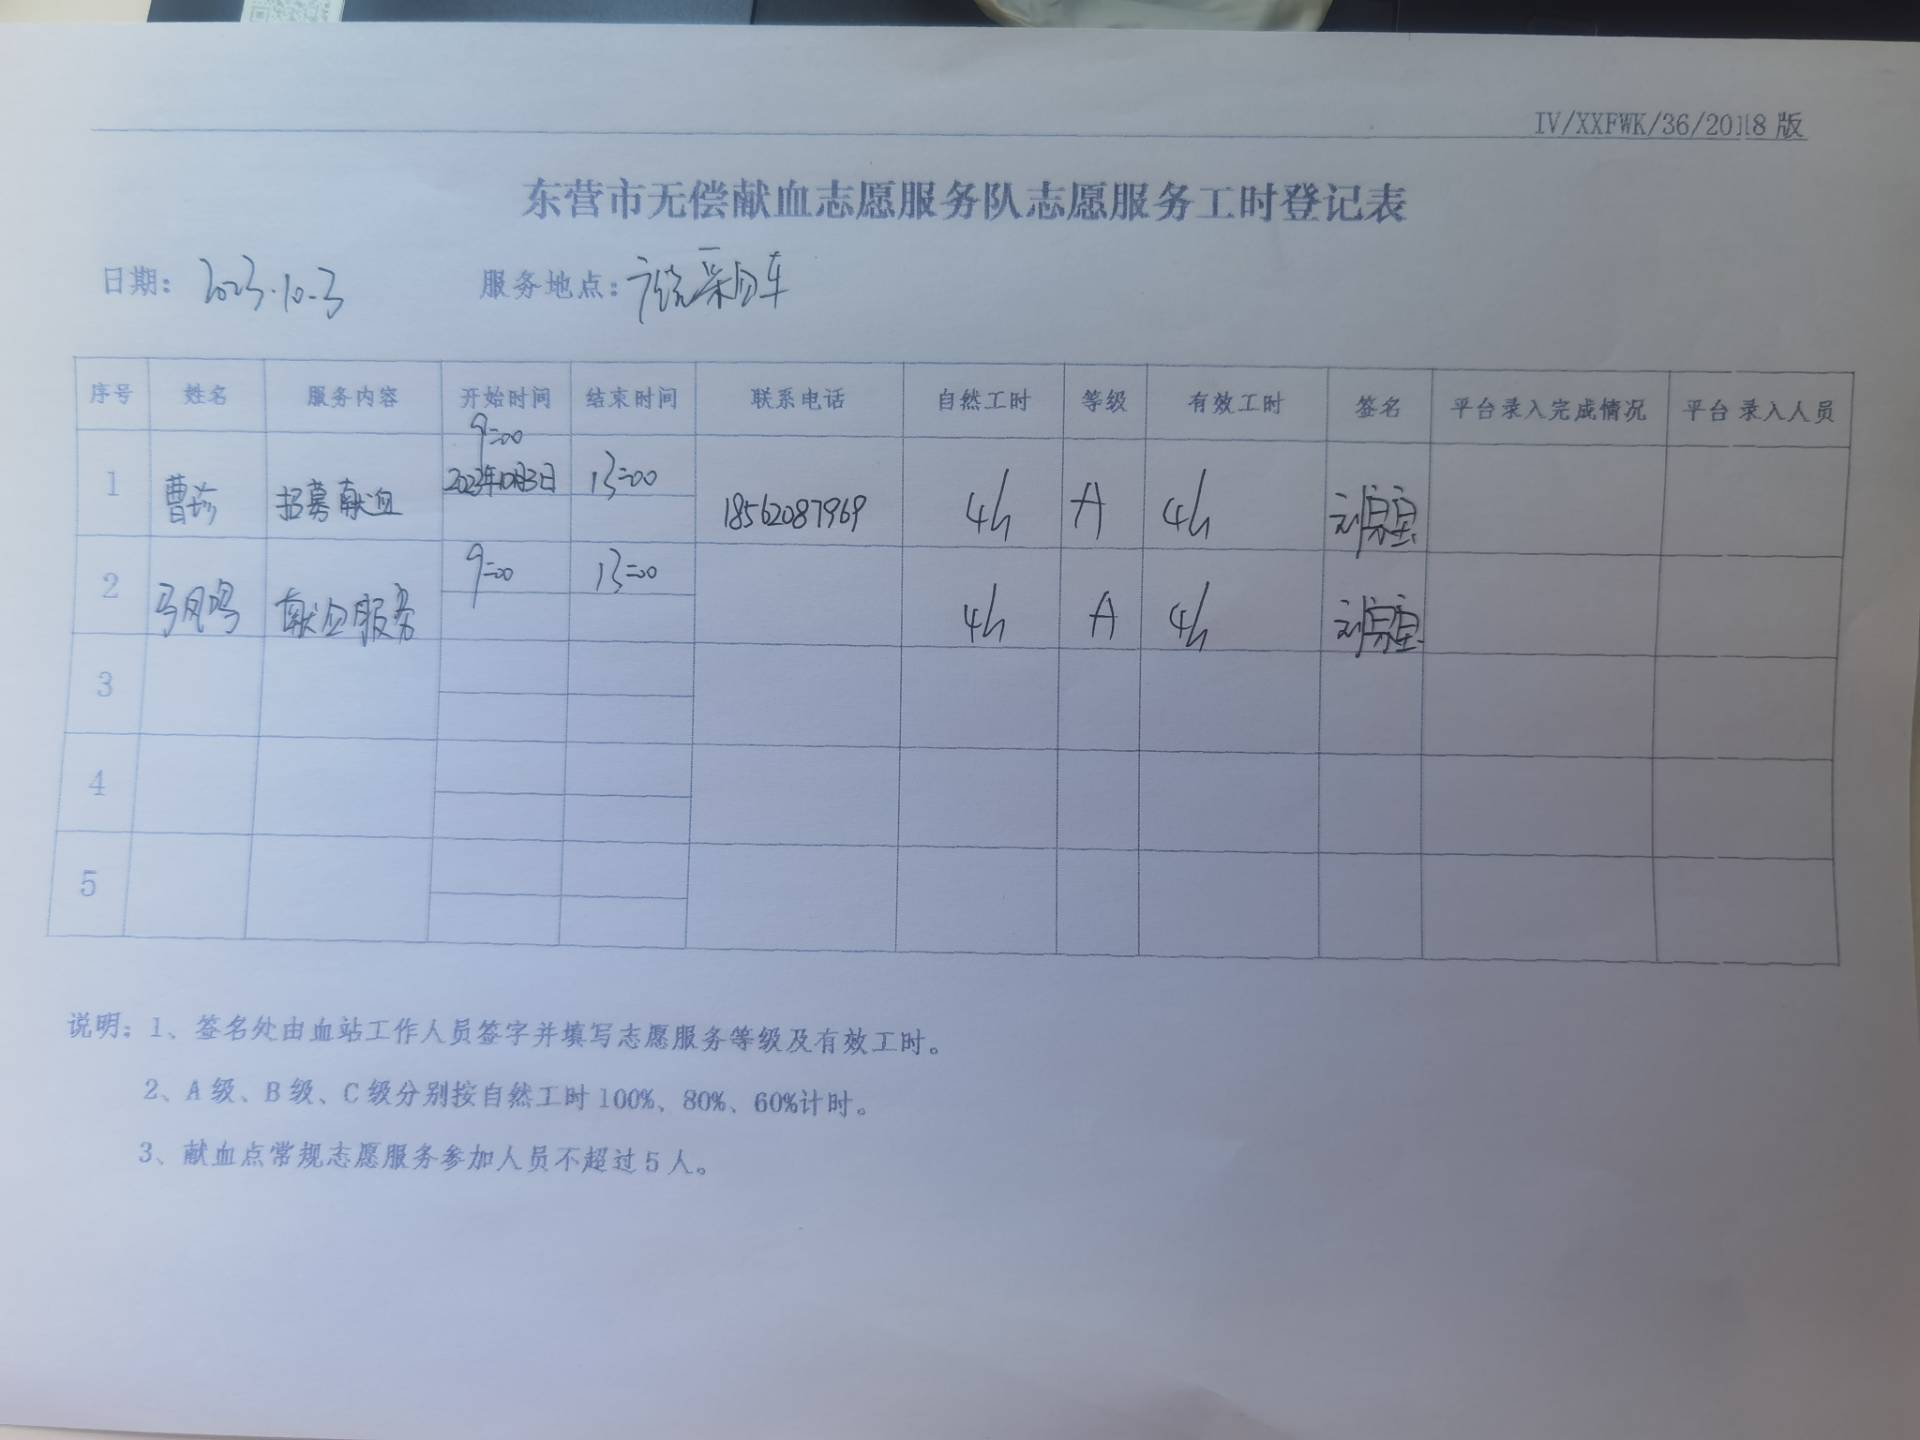 IV/XXFWK/36/2018版
东营市无偿献血志愿服务队志愿服务工时登记表
日期: 2023.10.3 服务地点: 广饶采血车
序号 姓名 服务内容 开始时间 结束时间 联系电话 自然工时 等级 有效工时 签名 平台录入完成情况 平台录入人员
9:00
1 曹 招募献血 2023年10月3日 13:00 18562087969 4h A 4h 刘
2 献血服务 9:00 13:00 4h A 4h 刘
3
4
5
说明: 1、签名处由血站工作人员签字并填写志愿服务等级及有效工时。
2、A级、B级、C级分别按自然工时100%、80%、60%计时。
3、献血点常规志愿服务参加人员不超过5人。